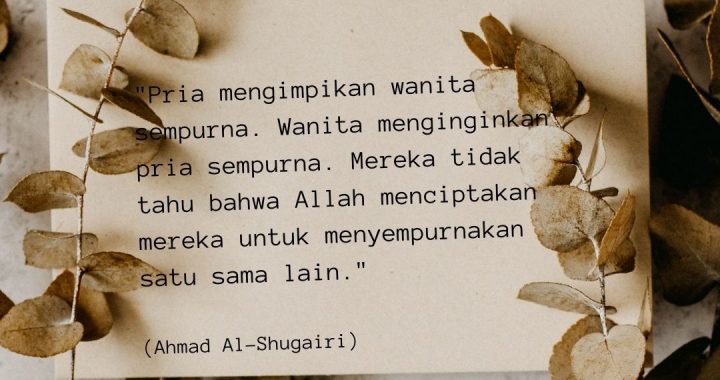 "Pria mengimpikan wanita
sempurna. Wanita menginginkan
pria sempurna. Mereka tidak
tahu bahwa Allah menciptakan
mereka untuk menyempurnakan
satu sama lain."
(Ahmad Al-Shugairi)